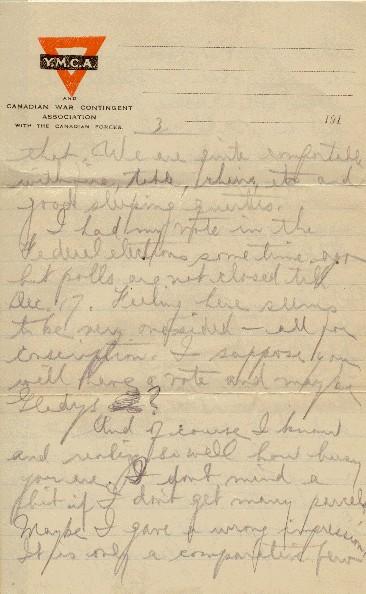 Y.M.C.A.
AND
CANADIAN WAR CONTINGENT
ASSOCIATION
WITH THE CANADIAN FORCES.
3
191
that. We are quite comfortable
with fire, table, chairs, etc and
good sleeping quarters.
I had my vote in the
Federal elections some time ago
but polls are not closed till
Dec. 17. Feeling here seems
to be very onesided – all for
conscription. I suppose you
will have a vote and maybe
Gladys ?
And of course I know
and realize so well how busy
you are. I don't mind a
bit if I don't get many parcels
Maybe I gave a wrong impression
It is only a comparative few